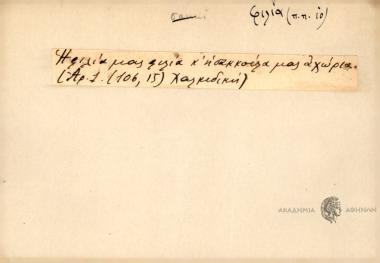 φιλία (π.π. 10)
Η φιλία μας φιλία κ' η σακκούλα μας αχώρια.
(Αρ. 1. (106, 15) Χαλκιδική)
ΑΚΑΔΗΜΙΑ ΑΘΗΝΩΝ